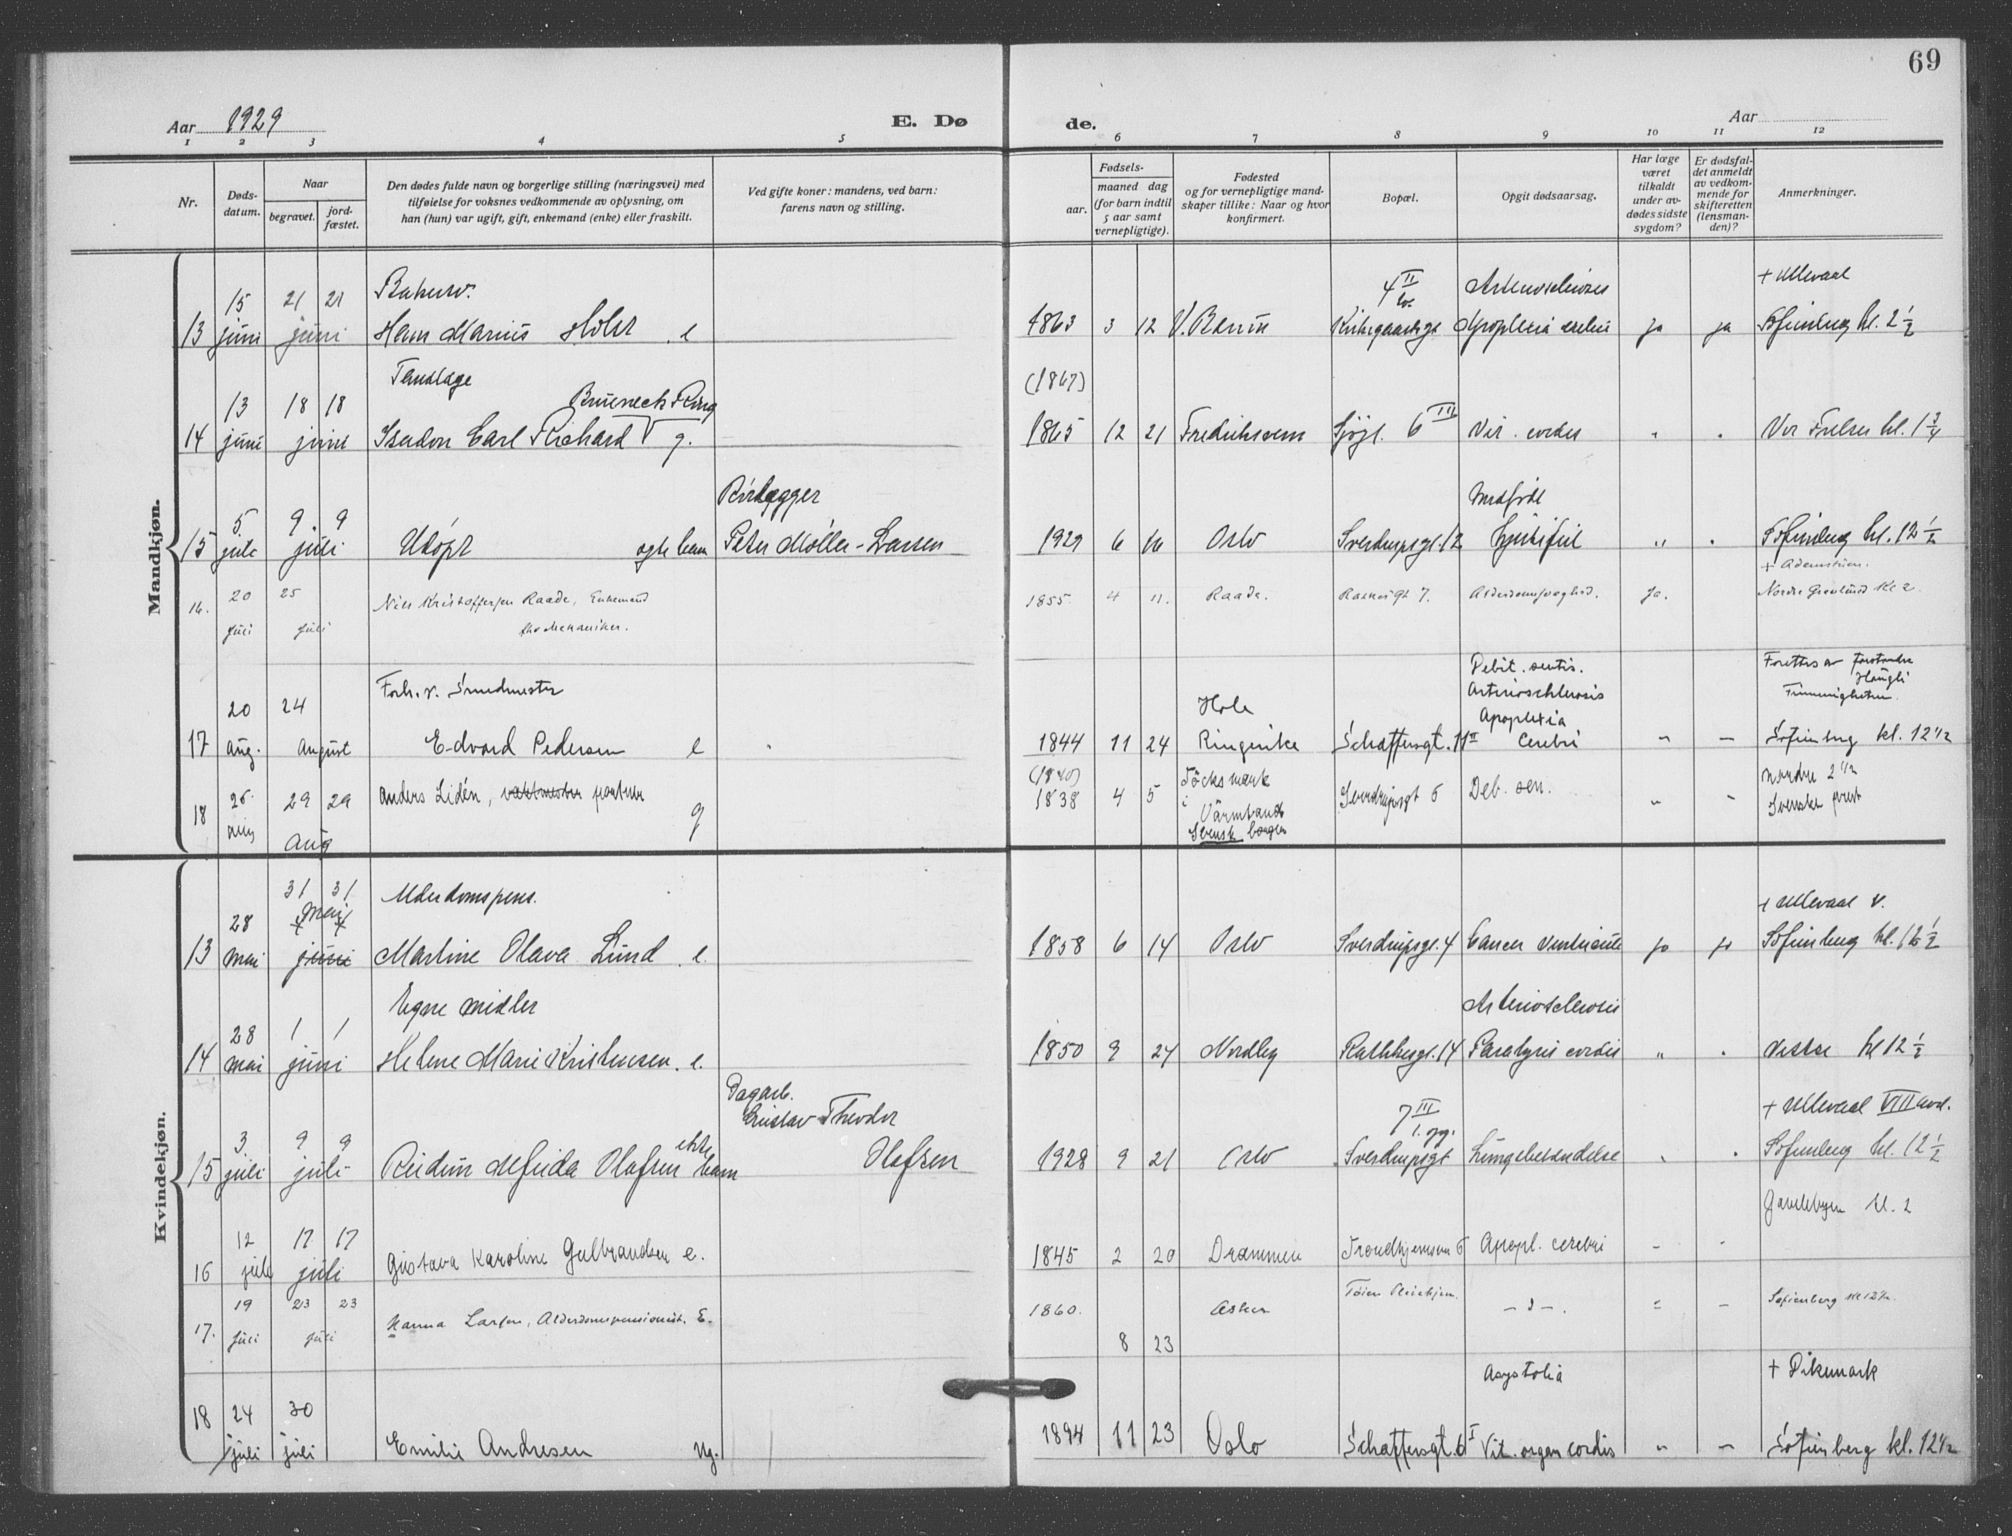 69
Aar 1929 E. Dø de. Aar
1 2 3 4 5 6 7 8 9 10 11 12
Nr.
Døds-
datum.
Naar
begravet.
jord-
fæstet.
Den dødes fulde navn og borgerlige stilling (næringsvei) med
tilføielse for voksnes vedkommende av oplysning, om
han (hun) var ugift, gift, enkemand (enke) eller fraskilt.
Ved gifte koner: mandens, ved barn:
farens navn og stilling.
Fødsels-
aar.
maaned dag
(for barn indtil
5 aar samt
vernepligtige).
Fødested
og for vernepligtige mand-
skaper tillike: Naar og hvor
konfirmert.
Bopæl.
Opgit dødsaarsag.
Har læge
været
tilkaldt
under av-
dødes sidste
sygdom?
Er dødsfal-
det anmeldt
av vedkom-
mende for
skifteretten
(lensman-
den)?
Anmerkninger.
Mandkjøn.
15 21 21 4 II + Ullevaal
13 juni juni Hans Marius Holst e 1863 3 12 V. Bærum Apoplexia cerebri ja ja Sofienberg kl. 2 1/2
Tandlæge (1867)
13 18 18
14 juni juni Carl Richard g. 1865 12 21 Fredriksvern 6 III Vit. cordis " " Vor Frelser kl. 1 3/4
5 9. 9 Medfødt
15 juli juli Udøpt egte barn Peter Møller-Larsen 1929 6 16 Oslo Sverdrupsgt. 12 Hjertefeil " " Sofienberg kl. 12 1/2
20 25
16. juli juli Nils Kristoffersen Raade, Enkemand 1855. 4 11. Raade. Rathkesgt 7. Alderdomssvaghed. Ja. Nordre Gravlund kl 2
fhv Mekaniker.
Forh. v. Smedmester Debit. sentis.
20 24 Hole Arterioschlerosis
Apoplexia
17 aug. August Edvard Pedersen e 1844 11 24 Ringerike Schaffersgt. 11 II Cerebri " — Sofienberg kl. 12 1/2
(1840) Töcksmark Nordre 2 1/2
26. 29 29 Anders Lidén, vaktmester portner 1838 4 5 i Sverdrupsgt 5 Deb. sen. " — Svenske prest
18 Aug g Värmland
Svensk borger
Kvindekjøn.
31 31 Alderdomspens. + Ullevaal v.
28 mai
13 mai juni Martine Olava Lund . e. 1858 6 14 Oslo Sverdrupsgt. 4 Cancer ventriculi ja ja Sofienberg kl. 12 1/2
Egne midler Arteriosclerosis
28 1 1
14 mai juni Helene Marie Kristensen . e. 1850 9 24 Nordby Rathkesgt. 14 Paralysis cordis " . Vestre kl 12 1/2
Dagarb.
Gustav Theodor 7 III + Ullevaal VIII avd.
3. 9 9 ekte 1. og.
15 juli juli Reidun Alfrida Olafsen barn Olafsen 1928 9 21 Oslo Sverdrupsgt Lungebetændelse . . Sofienberg kl. 12 1/2
Gamlebyen kl. 2
12 17 17
16 juli juli Gustava Karoline Gulbrandsen e. 1845 2 20 Drammen Trondhjemsvn 5 Apopl. cerebri — "
19 23 23 Tøien Pleiehjem.
17. juli juli Hanna Larsen, Alderdomspensionist. E. 1860. 8 23 Asker — d — . = — Sofienberg kl 12 1/2.
Asystolia + Dikemark
24 30
18 juli juli Emilie Andresen Ug. 1894 11 23 Oslo Schaffersgt. 6 I Vit. organ cordis " — Sofienberg kl. 12 1/2